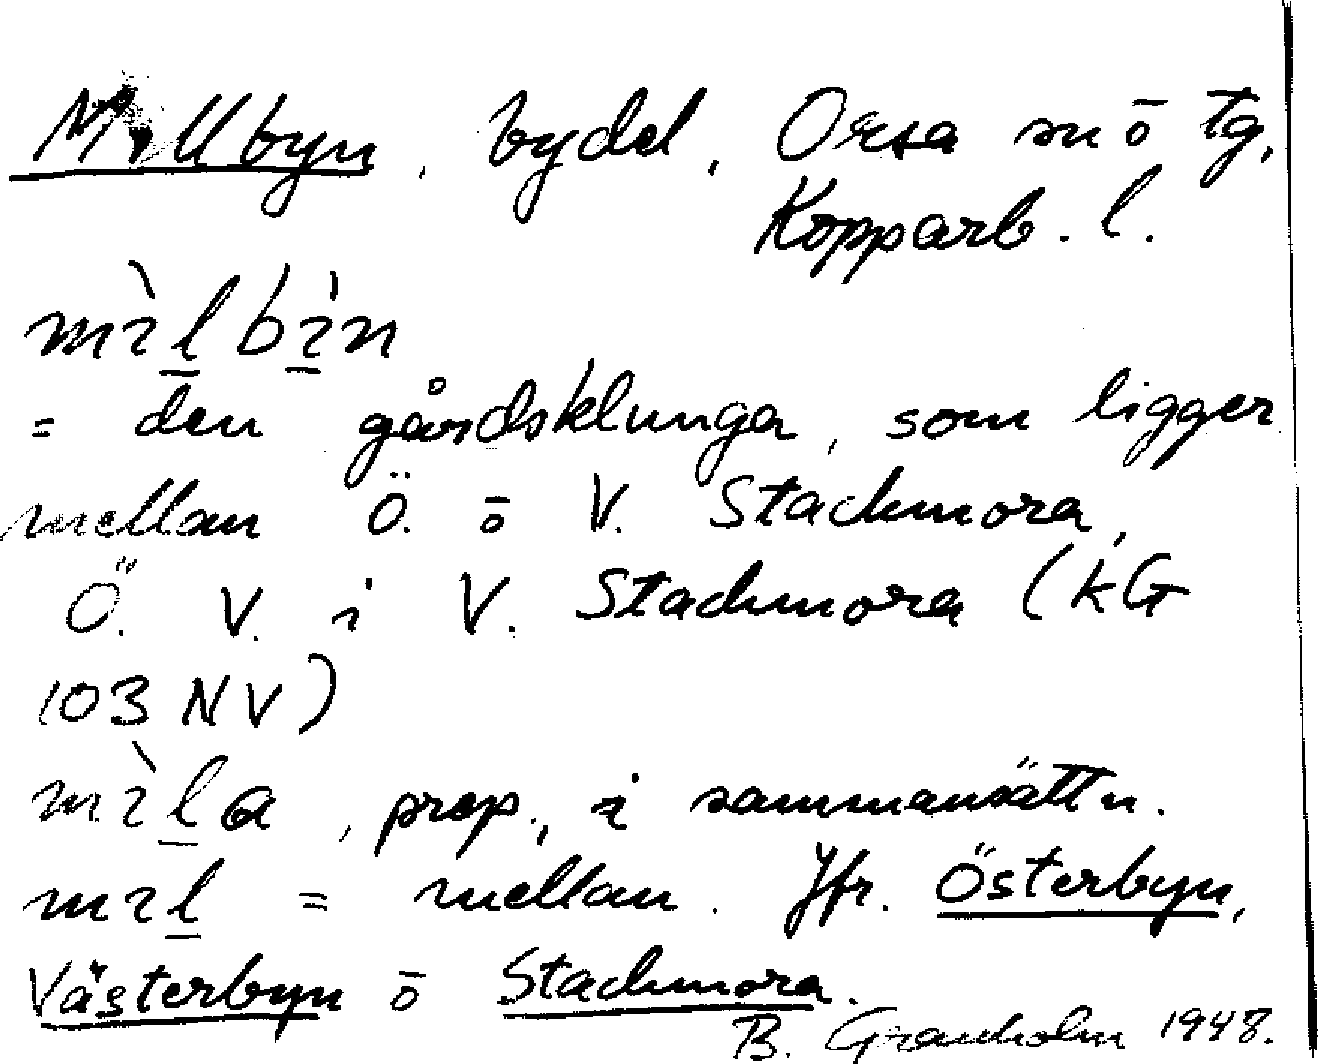 Millbyn, bydel, Orsa sn ō tg,
Kopparb. l.
mìlbìn
= den gårdsklunga, som ligger
mellan Ö. ō V. Stackmora,
Ö. V. i V. Stackmora (kG
103 NV)
mìla, prep., i sammansättn.
mıl = mellan. Jfr. Österbyn,
Västerbyn ō Stackmora.
B. Granholm 1948.